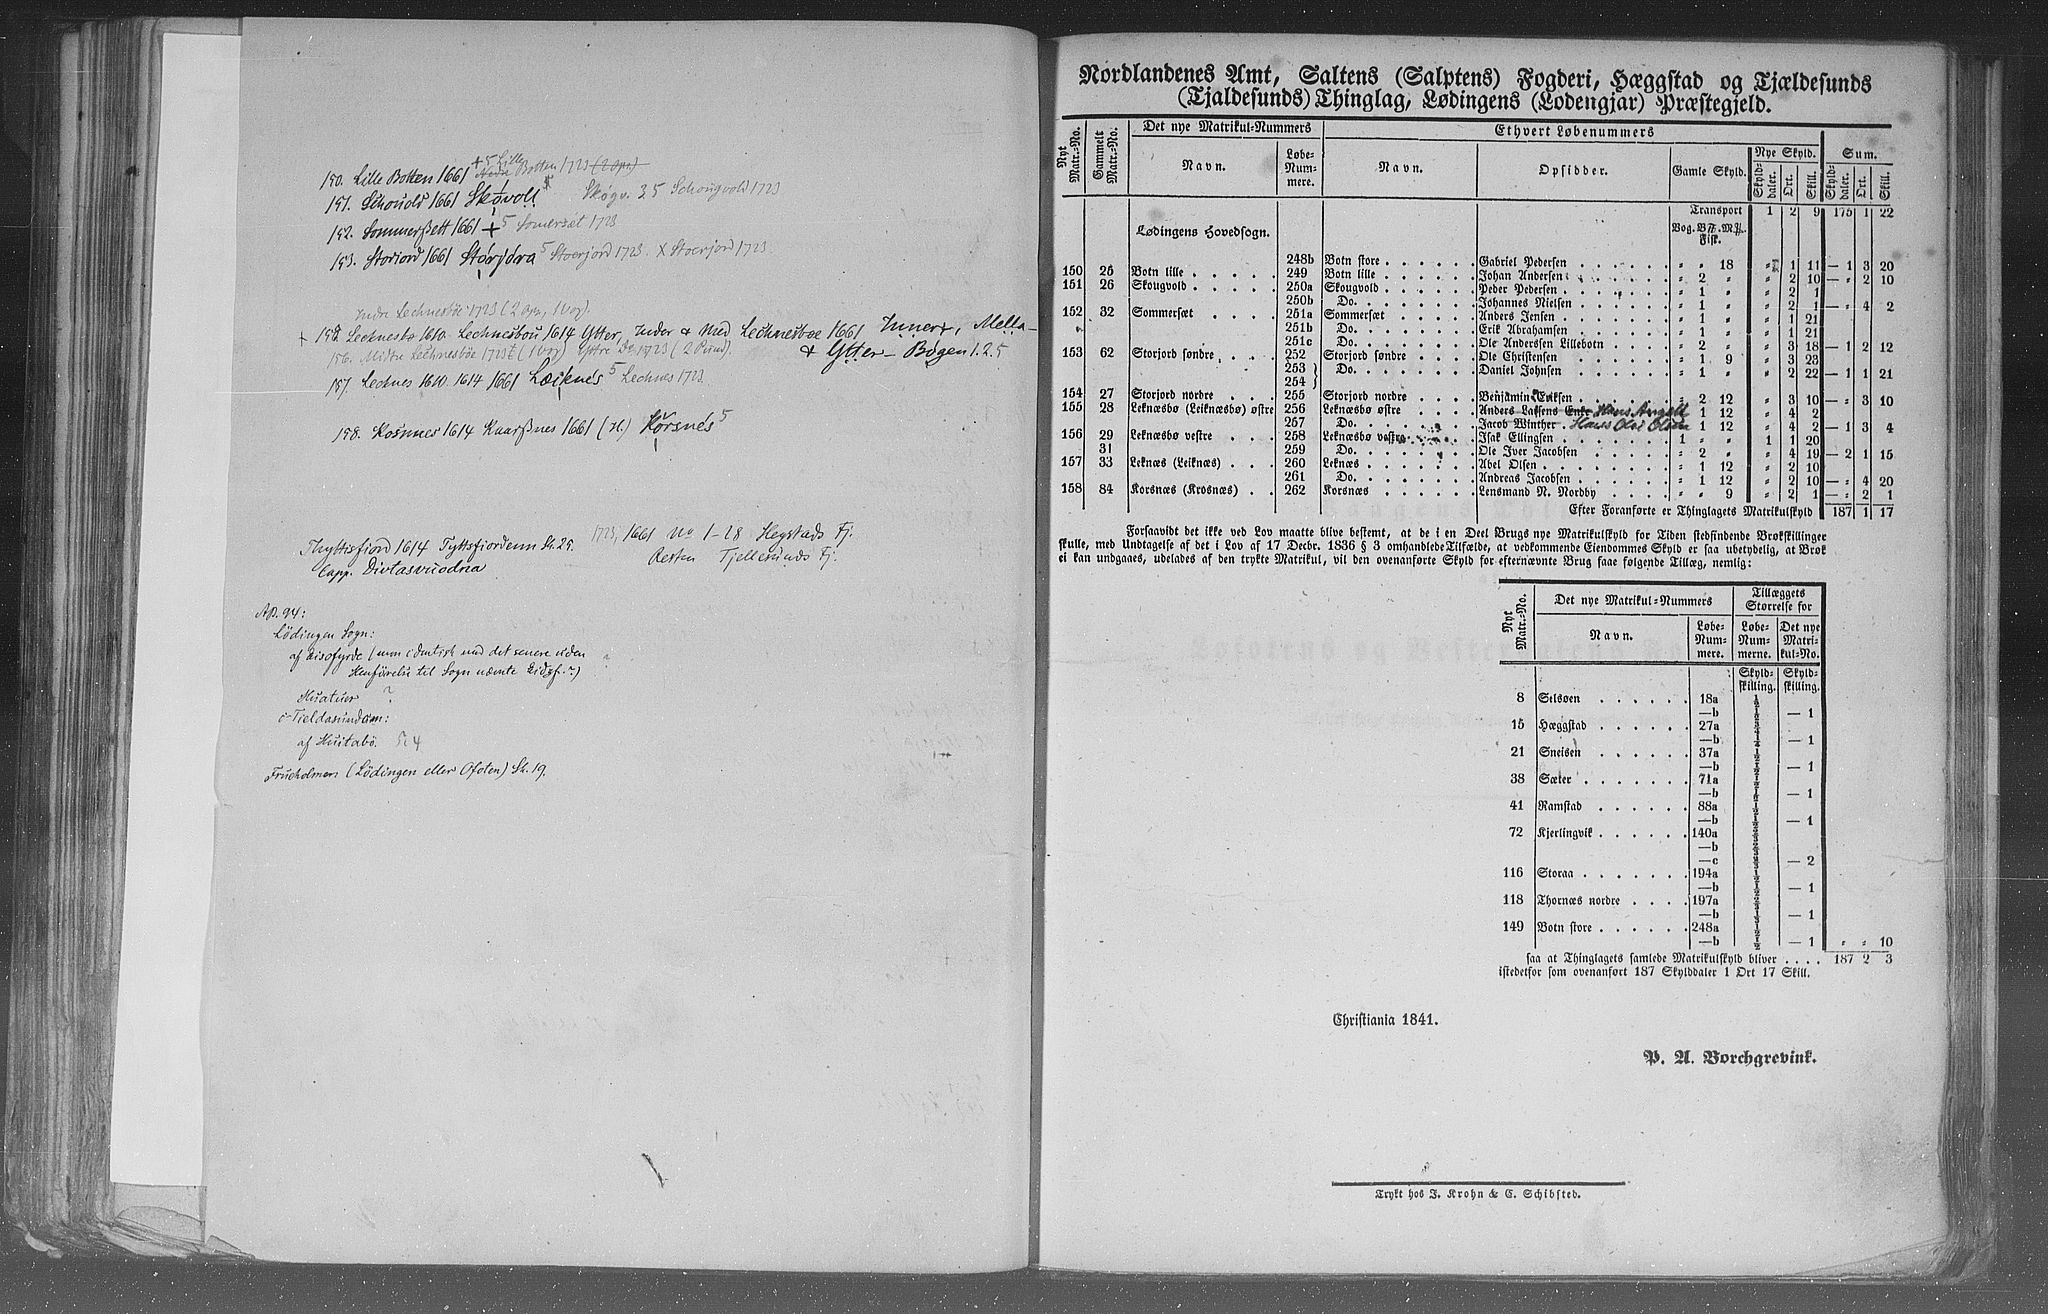 + 5 Lille
150. Lille Botten 1661 Nedre Botten 1723 (2 opn)
151. Schoudt 1661 Skóvoll Skógv. 35 Schougvold 1723
152. Sommerßett 1661 + 5 Somersæt 1723
153. Storiord 1661 Stórjóra 5 Stoerjord 1723 X Stoerjord 1723
Indre Lechnesböe 1723 (2 opn, 1 Vog).
Lecknesbo 1610. Lechnesboe 1614 Ytter, Inder & Med Lechnesboe 1661 Inner-, Mella-
156. Midtre Lechnesböe 1723 (1 Vog) Yttre Do 1723 (2 Pund). & Ytter- Bógen 1.2.5
157. Lecknes 1610. 1614 1661 Leiknes 5 Lechnes 1723
158. Kosnnes 1614 Kaarßnes 1661 Korsnes 5
Thyttisfiord 1614 Tyttsfiordenn St. 25. 1723, 1661 No 1-28 Hegstads Fj.
Lapp. Divtasvuodna Resten Tjellesunds Fj.
AB. 94:
Lödingen Sogn:
af Eisofyrde (mon identisk med det senere uden
Henförelse til Sogn nævnte Eidsf. ?)
Huatuer ?
i Tieldasundom:
af Huitabö. 5: 4
Frueholmen (Lödingen eller Ofoten) St. 19.
Nordlandenes Amt, Saltens (Salptens) Fogderi, Hæggstad og Tjældesunds
(Tjaldesunds) Thinglag, Lødingens (Lodengjar) Præstegjeld.
Nyt Matr.-No. Gammelt Matr.-No. Det nye Matrikul-Nummers Ethvert Løbenummers
Navn. Løbe-Nummere. Navn. Opsidder. Gamle Skyld. Nye Skyld. Sum.
Skylddaler. Ort. Skill. Skylddaler. Ort. Skill.
Transport 1 2 9 175 1 22
Lødingens Hovedsogn. Bog. B℔. M℔. Fisk.
248b Botn store Gabriel Pedersen " " 18 " 1 11 — 1 3 20
150 25 Botn lille 249 Botn lille Johan Andersen " 2 " " 2 10 — " 2 10
151 26 Skougvold 250a Skougvold Peder Pedersen " 1 " " 2 1
250b Do. Johannes Nielsen " 1 " " 2 1 — " 4 2
152 32 Sommersæt 251a Sommersæt Anders Jensen " 1 " " 1 21
251b Do. Erik Abrahamsen " 1 " " 1 21
251c Do. Ole Anderssen Lillebotn " 2 " " 3 18 — 1 2 12
153 62 Storjord søndre 252 Storjord søndre Ole Christensen " 1 9 " 3 23
253 } Do. Daniel Johnsen " 1 " " 2 22 — 1 1 21
254 }
154 27 Storjord nordre 255 Storjord nordre Benjamin Eriksen " 2 12 " 3 10 — " 3 10
155 28 Leknæsbø (Leiknæsbø) østre 256 Leknæsbø østre Anders Larsens Enke Hans Angell 1 12 " 4 2
257 Do. Jacob Winther Hans Ole Olsen 1 12 " 4 2 — 1 3 4
156 29 Leknæsbø vestre 258 Leknæsbø vestre Isak Ellingsen 1 " " 1 1 20
31 259 Do. Ole Iver Jacobsen " 2 " " 4 19 — 2 1 15
157 33 Leknæs (Leiknæs) 260 Leknæs Abel Olsen " 1 12 " 2 10
261 Do. Andreas Jacobsen " 1 12 " 2 10 — " 4 20
158 84 Korsnæs (Krosnæs) 262 Korsnæs Lensmand N. Nordby " " 9 " 2 1 — " 2 1
Efter Foranførte er Thinglagets Matrikulskyld 187 1 17
Forsaavidt det ikke ved Lov maatte blive bestemt, at de i en Deel Brugs nye Matrikulskyld for Tiden stedfindende Brøkskillinger
skulle, med Undtagelse af det i Lov af 17 Decbr. 1836 § 3 omhandlede Tilfælde, at vedkommende Eiendommes Skyld er saa ubetydelig, at Brøk
ei kan undgaaes, udelades af den trykte Matrikul, vil den ovenanførte Skyld for efternævnte Brug saae følgende Tillæg, nemlig:
Nyt Matr.-No. Det nye Matrikul-Nummers Tillæggets Størrelse for
Navn. Løbe-Nummere. Løbe-Nummerne. Det nye Matrikul-No.
Skyldskilling. Skyldskilling.
8 Selsøen 18a ½
—b ½ — 1
15 Hæggstad 27a
—b — 1
21 Sneisen 37a ½
—b ½ — 1
38 Sæter 71a ½
—b ½ — 1
41 Ramstad 88a ½
—b ½ — 1
72 Kjerlingvik 140a
—b
—c — 2
116 Storaa 194a ½
—b ½ — 1
118 Thornæs nordre 197a
—b — 1
149 Botn store 248a ½
—b ½ — 1 " " 10
saa at Thinglagets samlede Matrikulskyld bliver 187 2 3
istedetfor som ovenanført 187 Skylddaler 1 Ort 17 Skill.
Christiania 1841.
P. A. Borchgrevink.
Trykt hos J. Krohn & C. Schibsted.